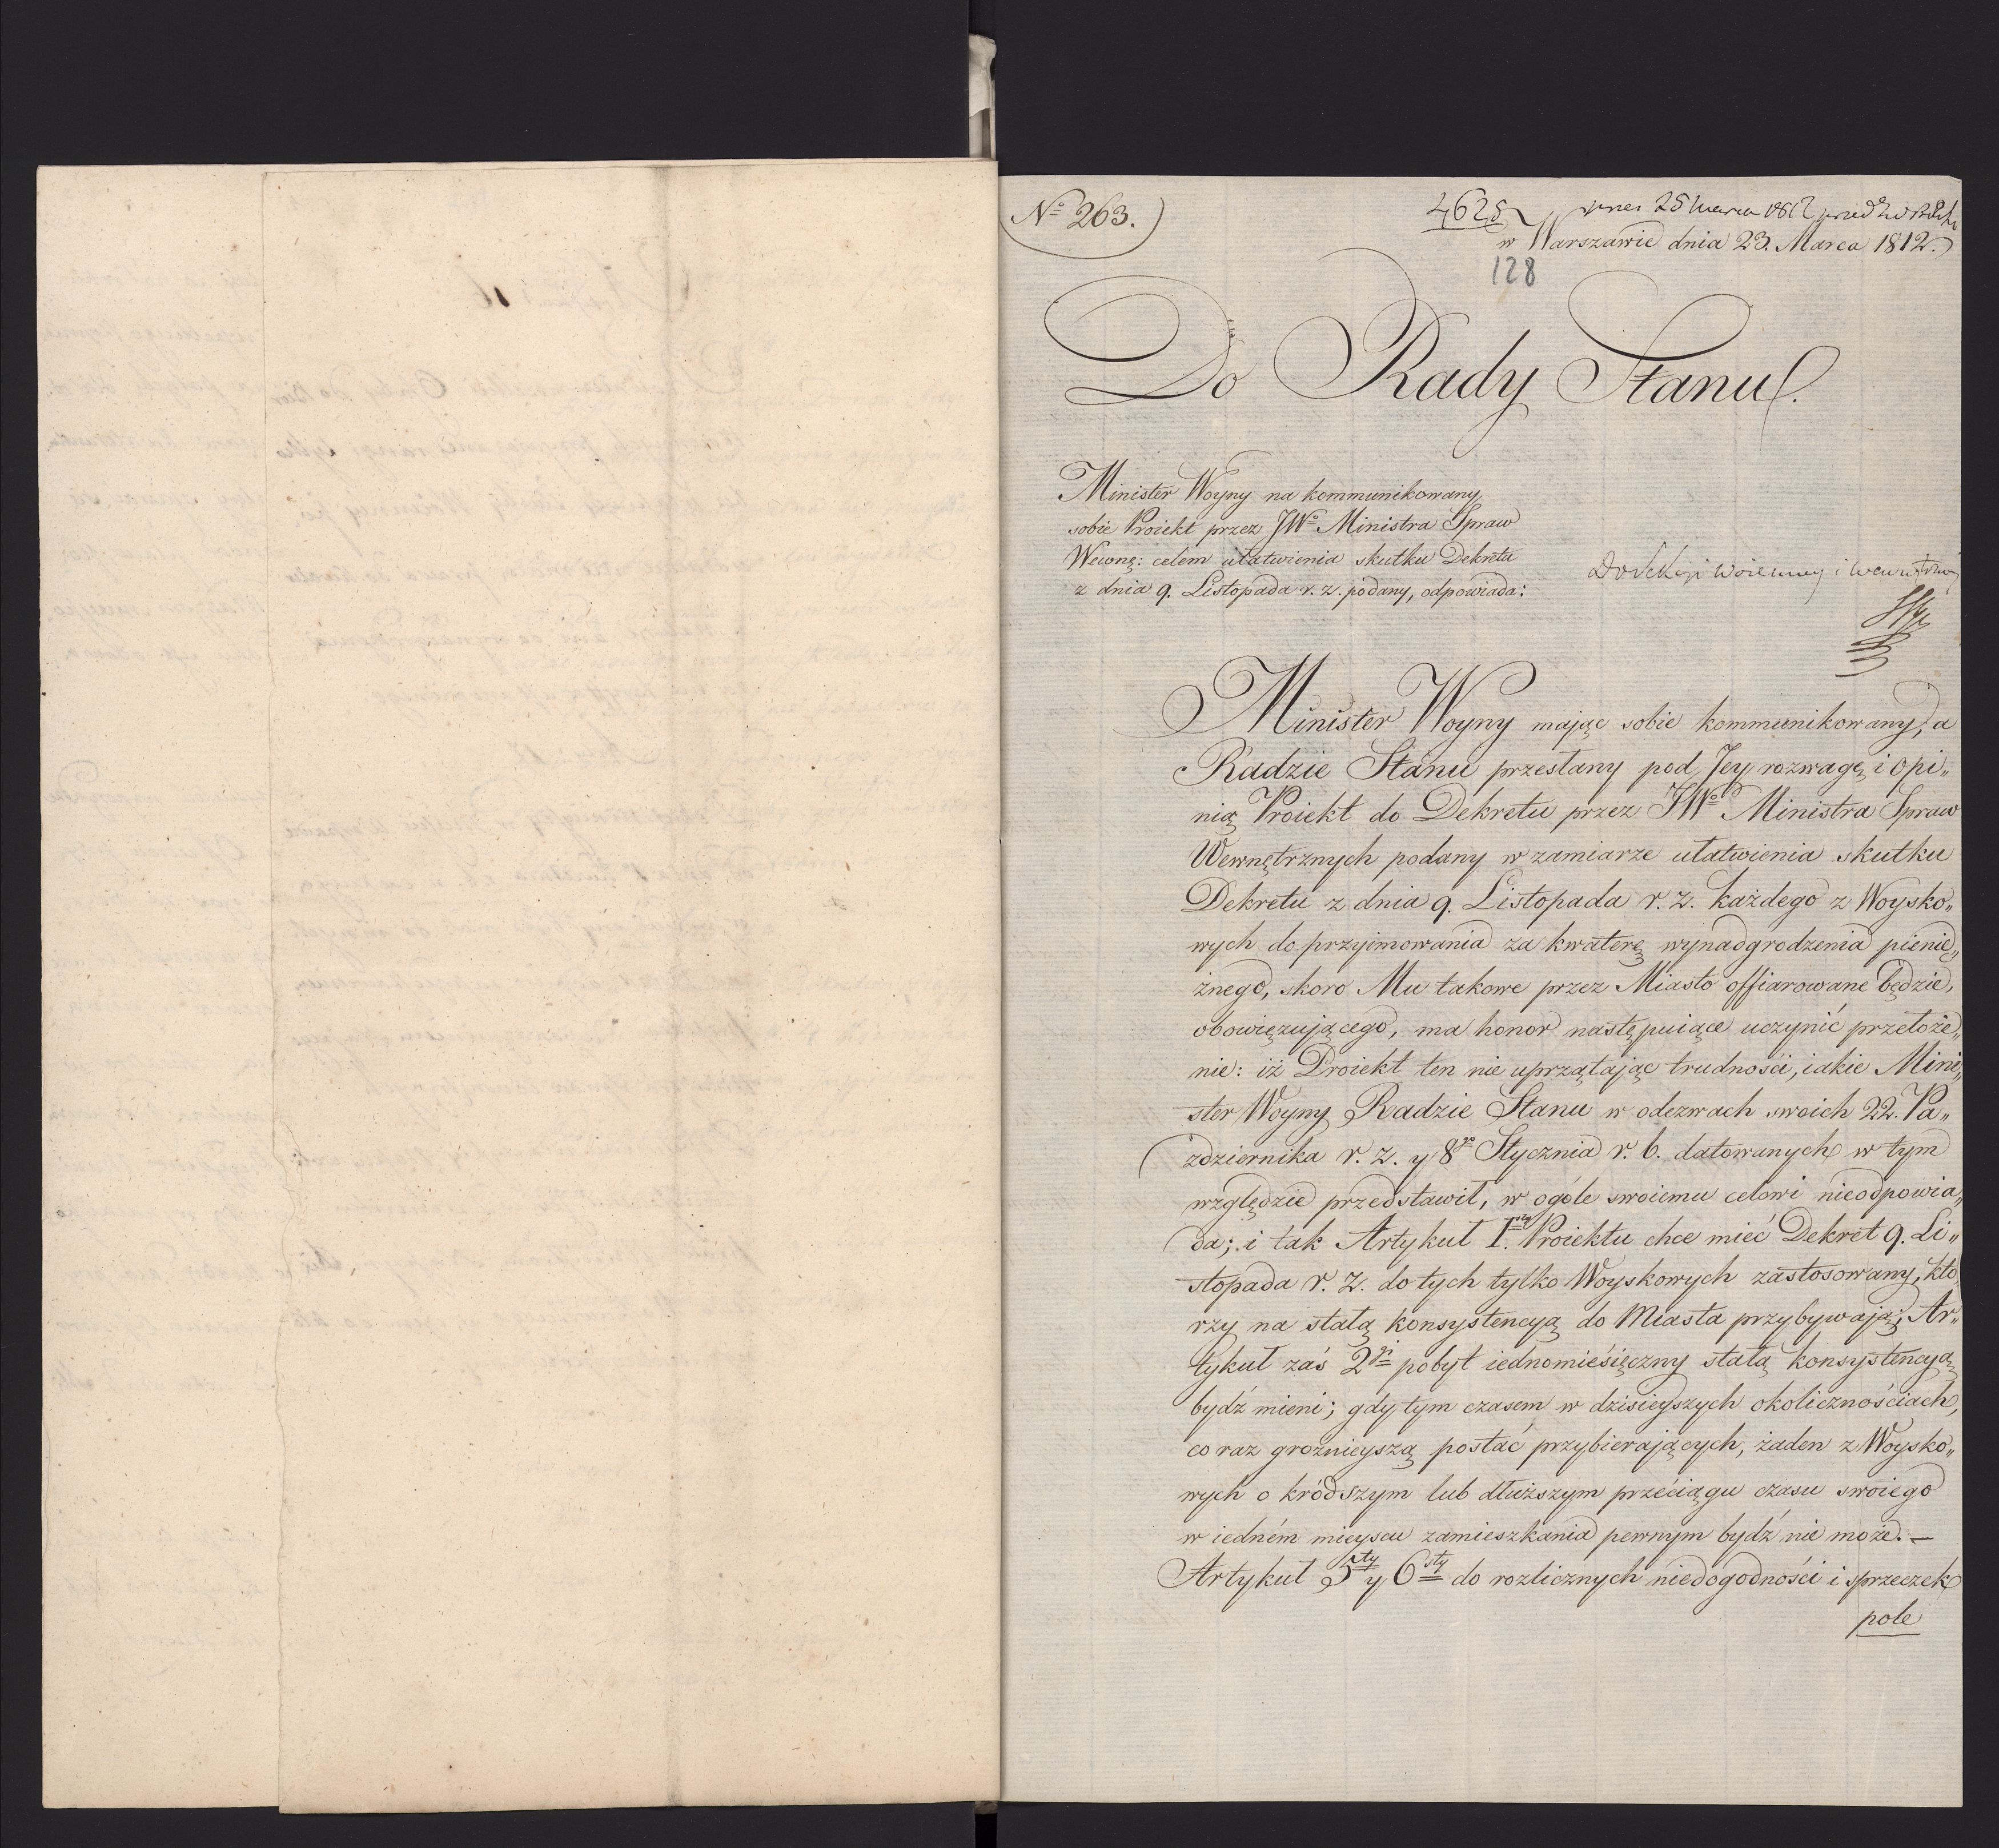 No 263.
4625
dnia 25 Marca 1812
w Warszawie dnia 23. Marca 1812.
128
Do Rady Stanu.
Minister Woyny na kommunikowany
sobie Proiekt przez JWo Ministra Spraw
Wewnę: celem ułatwienia skutku Dekretu
z dnia 9. Listopada r. z. podany, odpowiada:
Do Sekcyi Woienney i Wewnętrzney
Minister Woyny mając sobie kommunikowany, a
Radzie Stanu przesłany pod Jey rozwagę i opi„
nią Proiekt do Dekretu przez JWo Ministra Spraw
Wewnętrznych podany w zamiarze ułatwienia skutku
Dekretu z dnia 9. Listopada r. z. każdego z Woysko„
wych do przyimowania za kwaterę wynadgrodzenia pienię„
żnego, skoro Mu takowe przez Miasto offiarowane będzie,
obowięzującego, ma honor następuiące uczynić przełoże„
nie: iż Proiekt ten nie uprzątając trudności, iakie Mini„
ster Woyny Radzie Stanu w odezwach swoich 22. Pa„
zdziernika r. z. y 8go Stycznia r. b. datowanych w tym
względzie przedstawił, w ogóle swoiemu celowi nieodpowia„
da; i tak Artykuł I.szy Proiektu chce mieć Dekret 9. Li„
stopada r. z. do tych tylko Woyskowych zastosowany, któ„
rzy na stałą konsystencyą do Miasta przybywaią; Ar„
tykuł zaś 2gi pobyt iednomiesięczny stałą konsystencyą
bydź mieni; gdy tym czasem w dzisieyszych okolicznościach,
co raz groźnieyszą postać przybierających, żaden z Woysko„
wych o kródszym lub dłuższym przeciągu czasu swoiego
w iedném mieyscu zamieszkania pewnym bydź nie może. —
Artykuł 5ty y 6sty do rozlicznych niedogodności i sprzeczek
pole